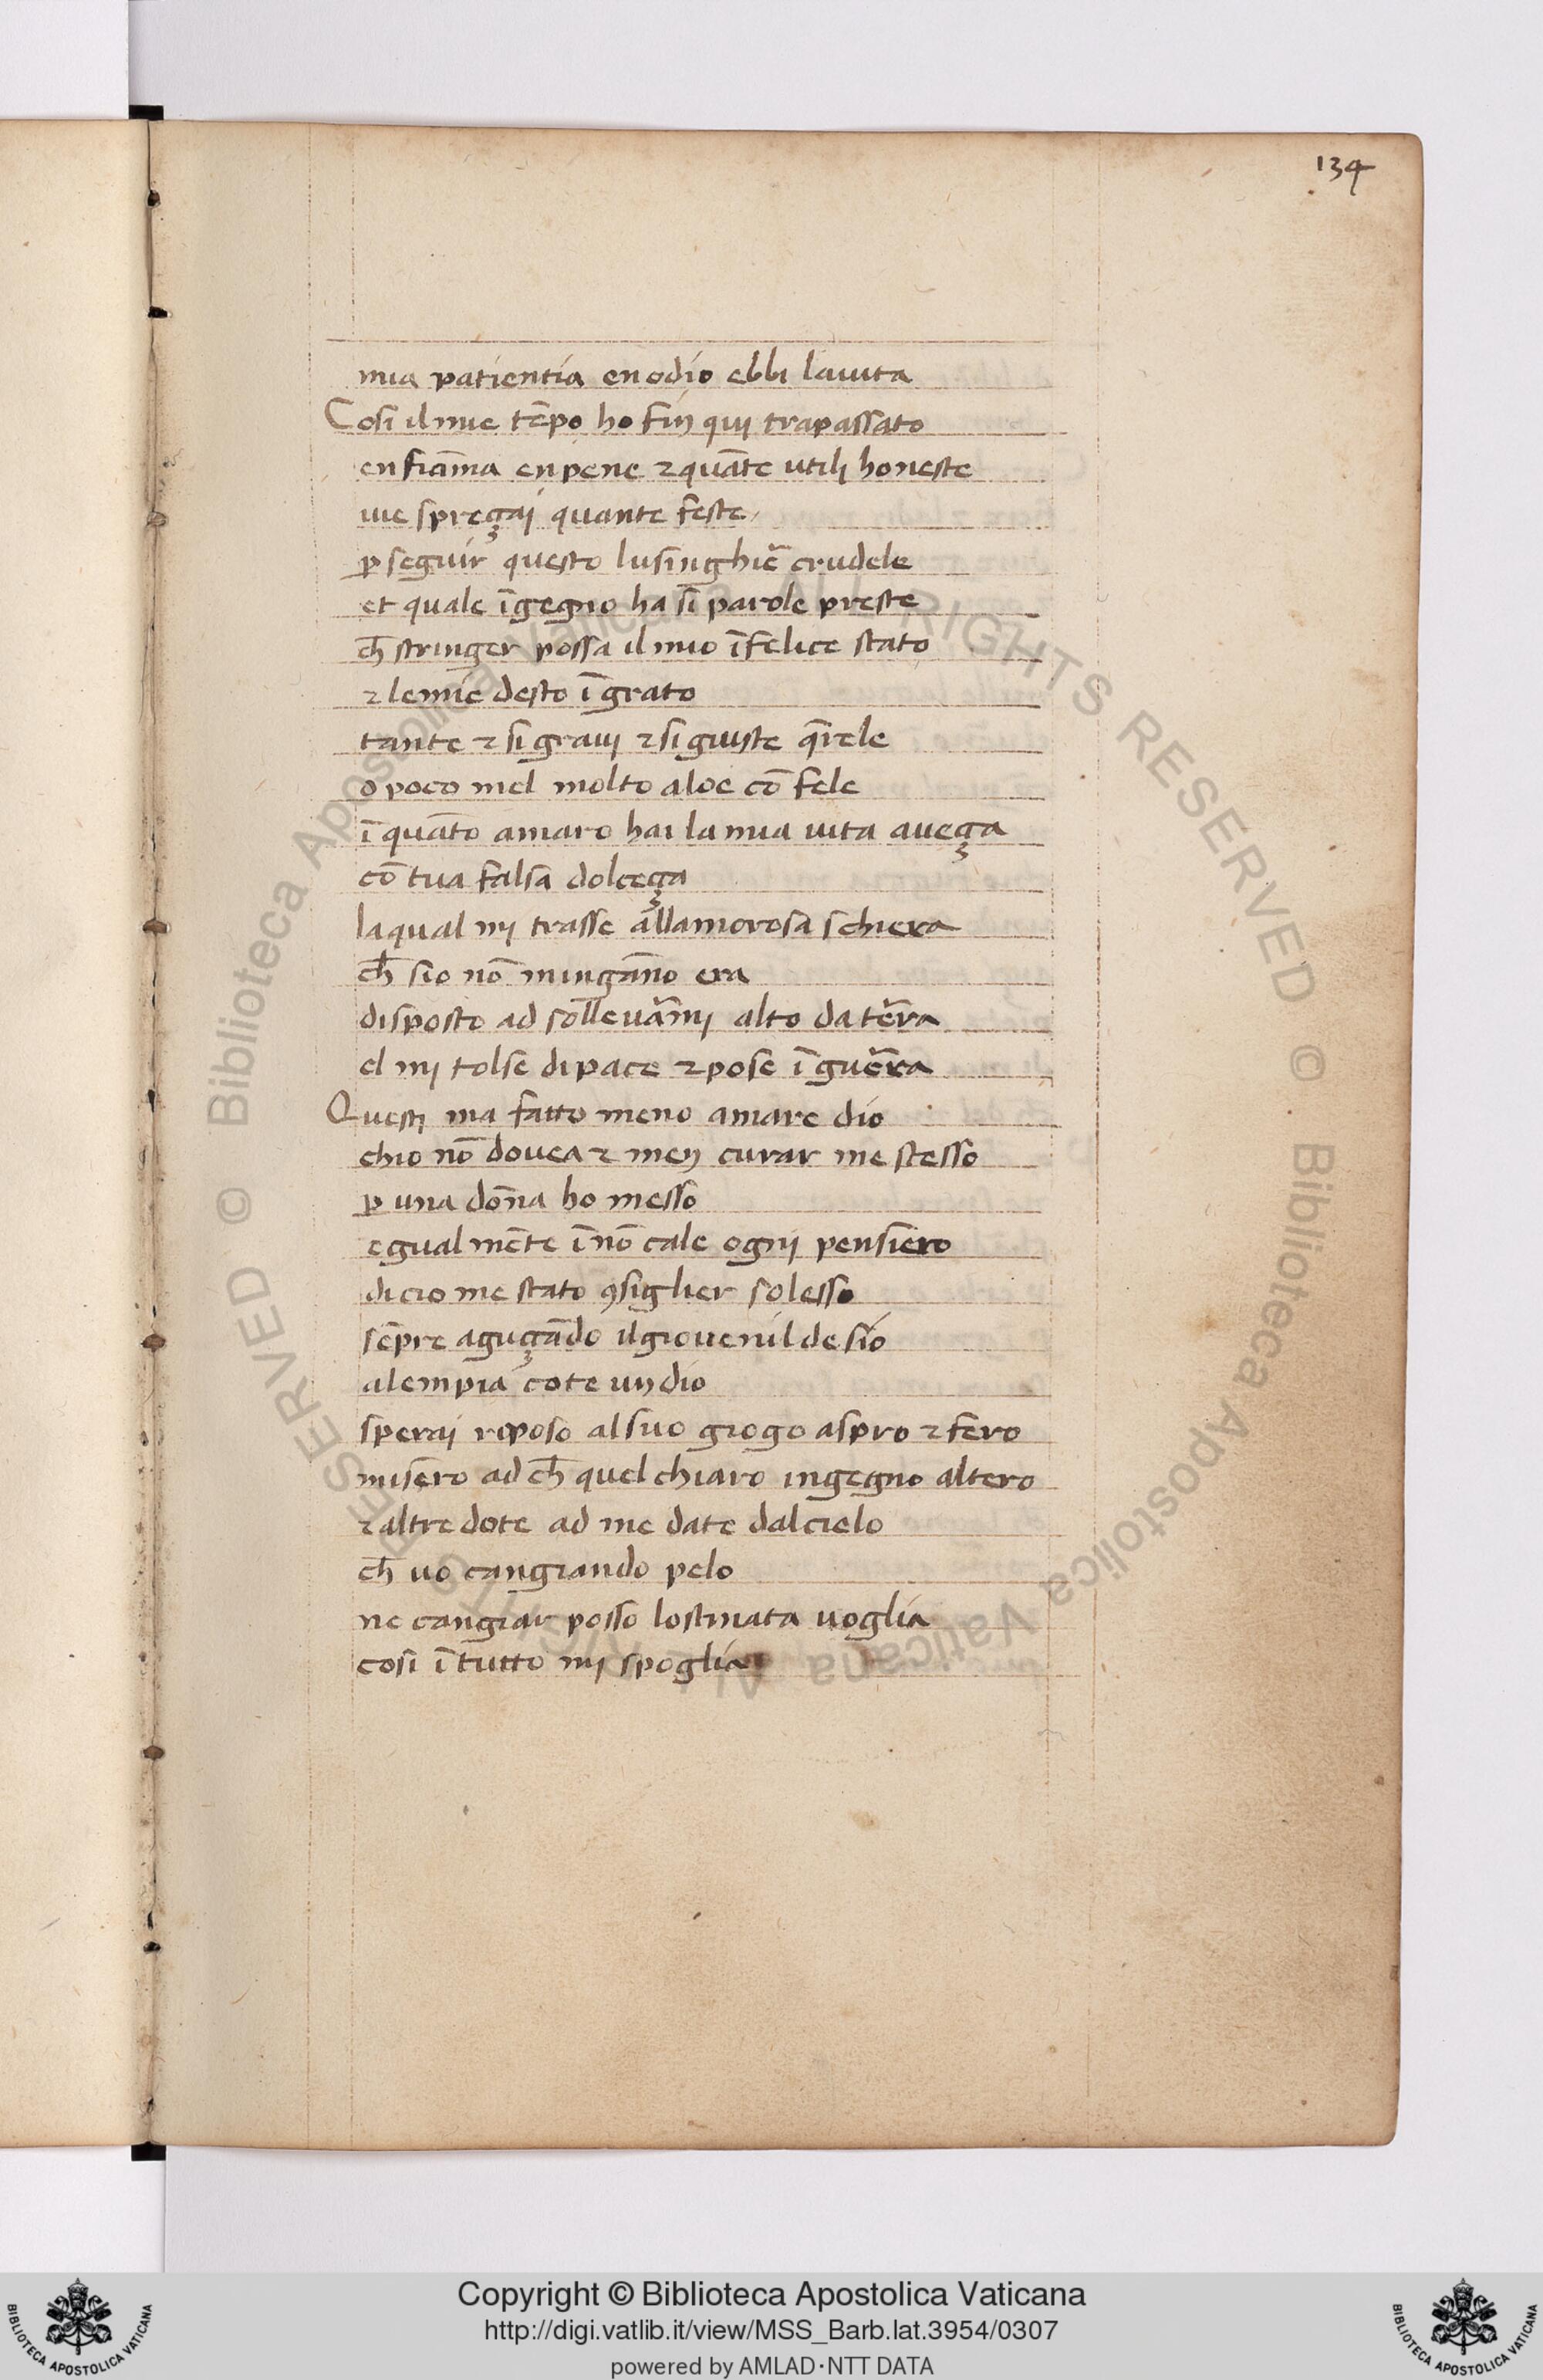 134
mia patientia en odio ebbi lauita
Cosi il mie tēpo ho fin qui trapassato
en fiāma en pene ⁊ quāte utili honeste
uie spreçai quante feste
ꝑ seguir questo lusinghier̄ crudele
et quale īgegno ha si parole preste
ch̄ stringer possa il mio īfelice stato
⁊ le mie desto īgrato
tante ⁊ si graui ⁊ si giuste q̄rele
o poco mel molto aloe cō fele
ī quāto amaro hai la mia uita aueça
cō tua falsa dolceça
laqual mi trasse allamorosa schiera
ch̄ sio nō mingāno era
disposto ad solleuarmi alto da terra
el mi tolse di pace ⁊ pose ī guerra
Questi ma fatto meno amare dio
chio nō douea ⁊ men curar me stesso
ꝑ una dōna ho messo
egual mēte ī nō cale ogni pensiero
di cio me stato ꝯsiglier solesso
sēpre aguçādo il giouenil desio
alempia cote un dio
sperai riposo al suo giogo aspro ⁊ fero
misero ad ch̄ quel chiaro ingegno altero
⁊ altre dote ad me date dal cielo
ch̄ uo cangiando pelo
ne cangiar posso lostinata uoglia
cosi ī tutto mi spoglia
Copyright © Biblioteca Apostolica Vaticana
http://digi.vatlib.it/view/MSS_Barb.lat.3954/0307
powered by AMLAD·NTT DATA
BIBLIOTECA APOSTOLICA VATICANA
BIBLIOTECA APOSTOLICA VATICANA
© Biblioteca Apostolica Vaticana ALL RIGHTS RESERVED © Biblioteca Apostolica Vaticana ALL RIGHTS RESERVED